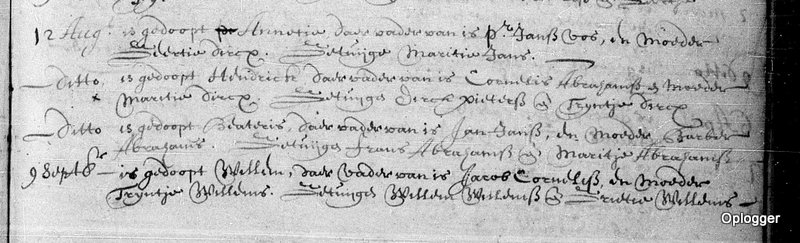 12 Aug: is gedoopt Annetie, daer vader van is Pr Janß Vos, en Moeder
Geertie Dircx. Getuijge Maritie Jans.
Ditto is gedoopt Hendrick daer vader van is Cornelis Abrahamß en Moeder
Maritie Dircx. Getuijgen Dircx Pieterß en Tryntje Dircx
Ditto is gedoopt Beateris, daer vader van is Jan Janß, en Moeder Barber
Abrahams. Getuijgen Frans Abrahamß en Maritje Abrahamß
9 Septbr is gedoopt Willem, daer vader van is Jacob Cornelisß, en Moeder
Tryntje Willems. Getuijgen Willem Willemß en Grietie Willems
Oplogger